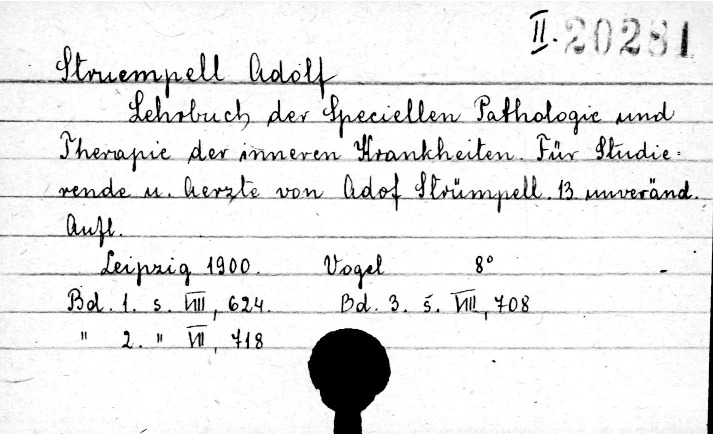 II. 20281
Struempell Adolf
Lehrbuch der Speciellen Pathologie und
Therapie der inneren Krankheiten. Für Studie=
rende u. Aerzte von Adof Strümpell. 13 unveränd.
Aufl.
Leipzig 1900. Vogel 8°
Bd. 1. s. VIII, 624. Bd. 3. s. VIII, 708
" 2. " VII, 718